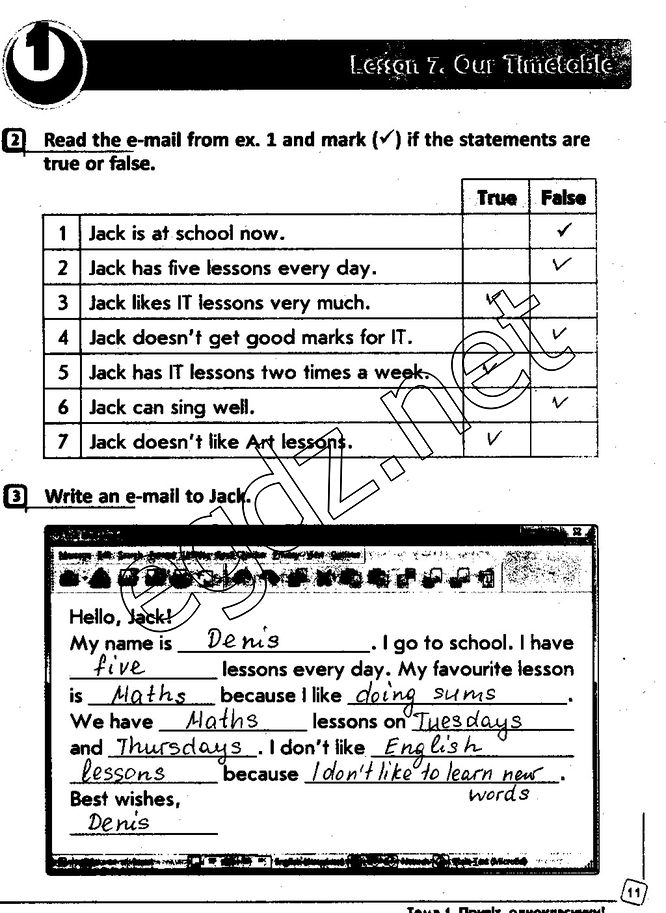 1
Lesson 7. Our Timetable
2 Read the e-mail from ex. 1 and mark (✓) if the statements are
true or false.
True False
1 Jack is at school now. ✓
2 Jack has five lessons every day. ✓
3 Jack likes IT lessons very much. ✓
4 Jack doesn't get good marks for IT. ✓
5 Jack has IT lessons two times a week. ✓
6 Jack can sing well. ✓
7 Jack doesn't like Art lessons. ✓
egdz.net
3 Write an e-mail to Jack.
Hello, Jack!
My name is Denis. I go to school. I have
five lessons every day. My favourite lesson
is Maths because I like doing sums.
We have Maths lessons on Tuesdays
and Thursdays. I don't like English
lessons because I don't like to learn new.
words
Best wishes,
Denis
11
Тема 1. Привіт, однокласнику!